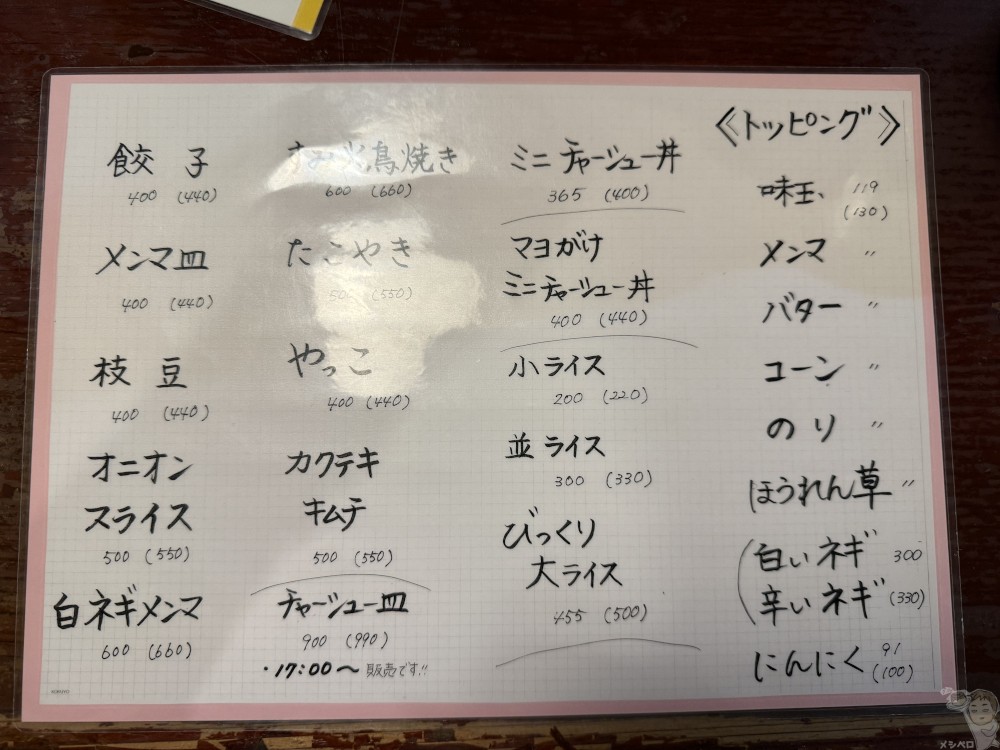 餃子
400 (440)
メンマ皿
400 (440)
枝豆
400 (440)
オニオン
スライス
500 (550)
白ネギメンマ
600 (660)
すみ火鳥焼き
600 (660)
たこやき
500 (550)
やっこ
400 (440)
カクテキ
キムチ
500 (550)
チャーシュー皿
900 (990)
・17:00〜 販売です!!
ミニチャーシュー丼
365 (400)
マヨがけ
ミニチャーシュー丼
400 (440)
小ライス
200 (220)
並ライス
300 (330)
びっくり
大ライス
455 (500)
《トッピング》
味玉、 119
(130)
メンマ 〃
バター 〃
コーン 〃
のり 〃
ほうれん草 〃
白いネギ 300
辛いネギ (330)
にんにく 91
(100)
メシペロ